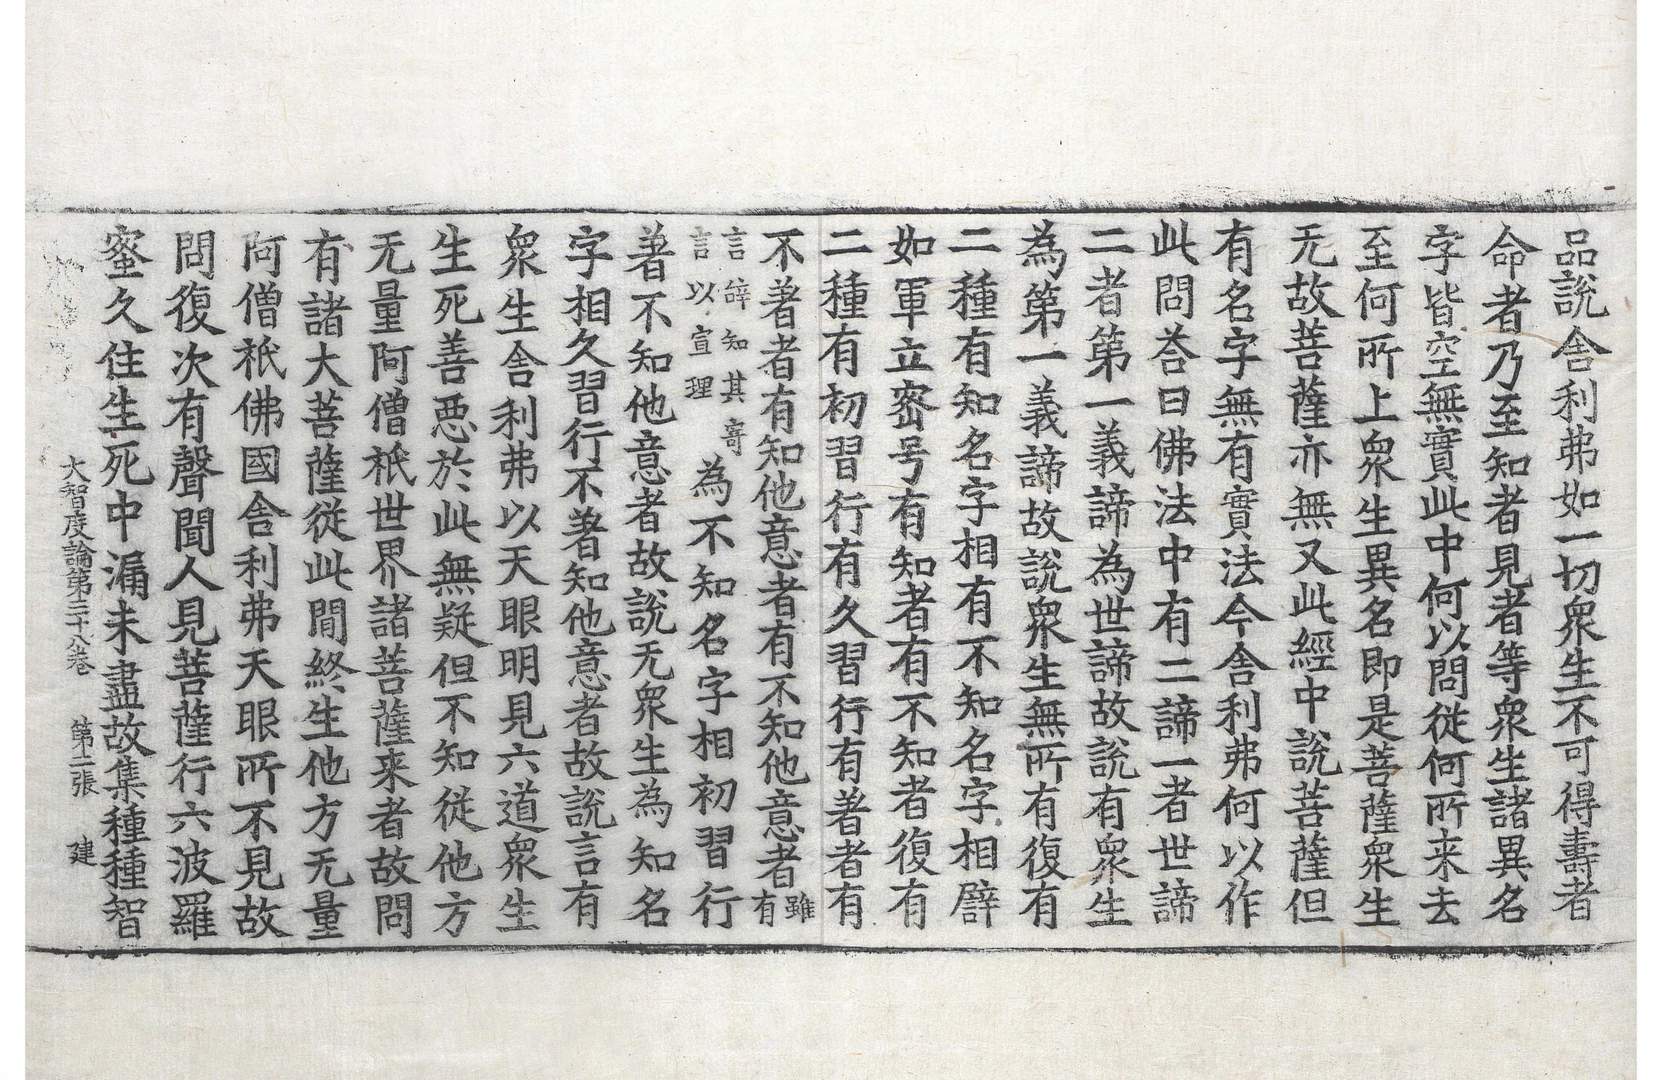 品說舍利弗如一切衆生不可得壽者
命者乃至知者見者等衆生諸異名
字皆空無實此中何以問從何所来去
至何所上衆生異名即是菩薩衆生
无故菩薩亦無又此經中說菩薩但
有名字無有實法今舍利弗何以作
此問荅曰佛法中有二諦一者世諦
二者第一義諦為世諦故說有衆生
為第一義諦故說衆生無所有復有
二種有知名字相有不知名字相譬
如軍立密号有知者有不知者復有
二種有初習行有久習行有著者有
不著者有知他意者有不知他意者雖有
言辝知其寄言以宣理為不知名字相初習行
著不知他意者故說无衆生為知名
字相久習行不著知他意者故說言有
衆生舍利弗以天眼明見六道衆生
生死善惡於此無疑但不知従他方
无量阿僧祇世界諸菩薩来者故問
有諸大菩薩従此間終生他方无量
阿僧祇佛國舍利弗天眼所不見故
問復次有聲聞人見菩薩行六波羅
蜜久住生死中漏未盡故集種種智
大智度論第三十八卷　第二張　建